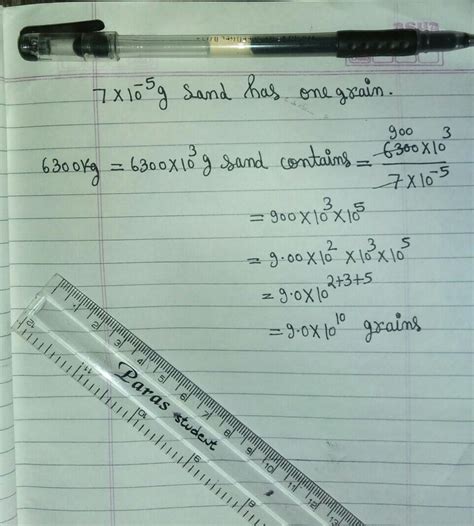 7×10⁻⁵g sand has one grain.
900
6300kg = 6300×10³ g sand contains = 6300×10³ / 7×10⁻⁵
= 900×10³×10⁵
= 9.00×10²×10³×10⁵
= 9.0×10²⁺³⁺⁵
= 9.0×10¹⁰ grains
Paras student